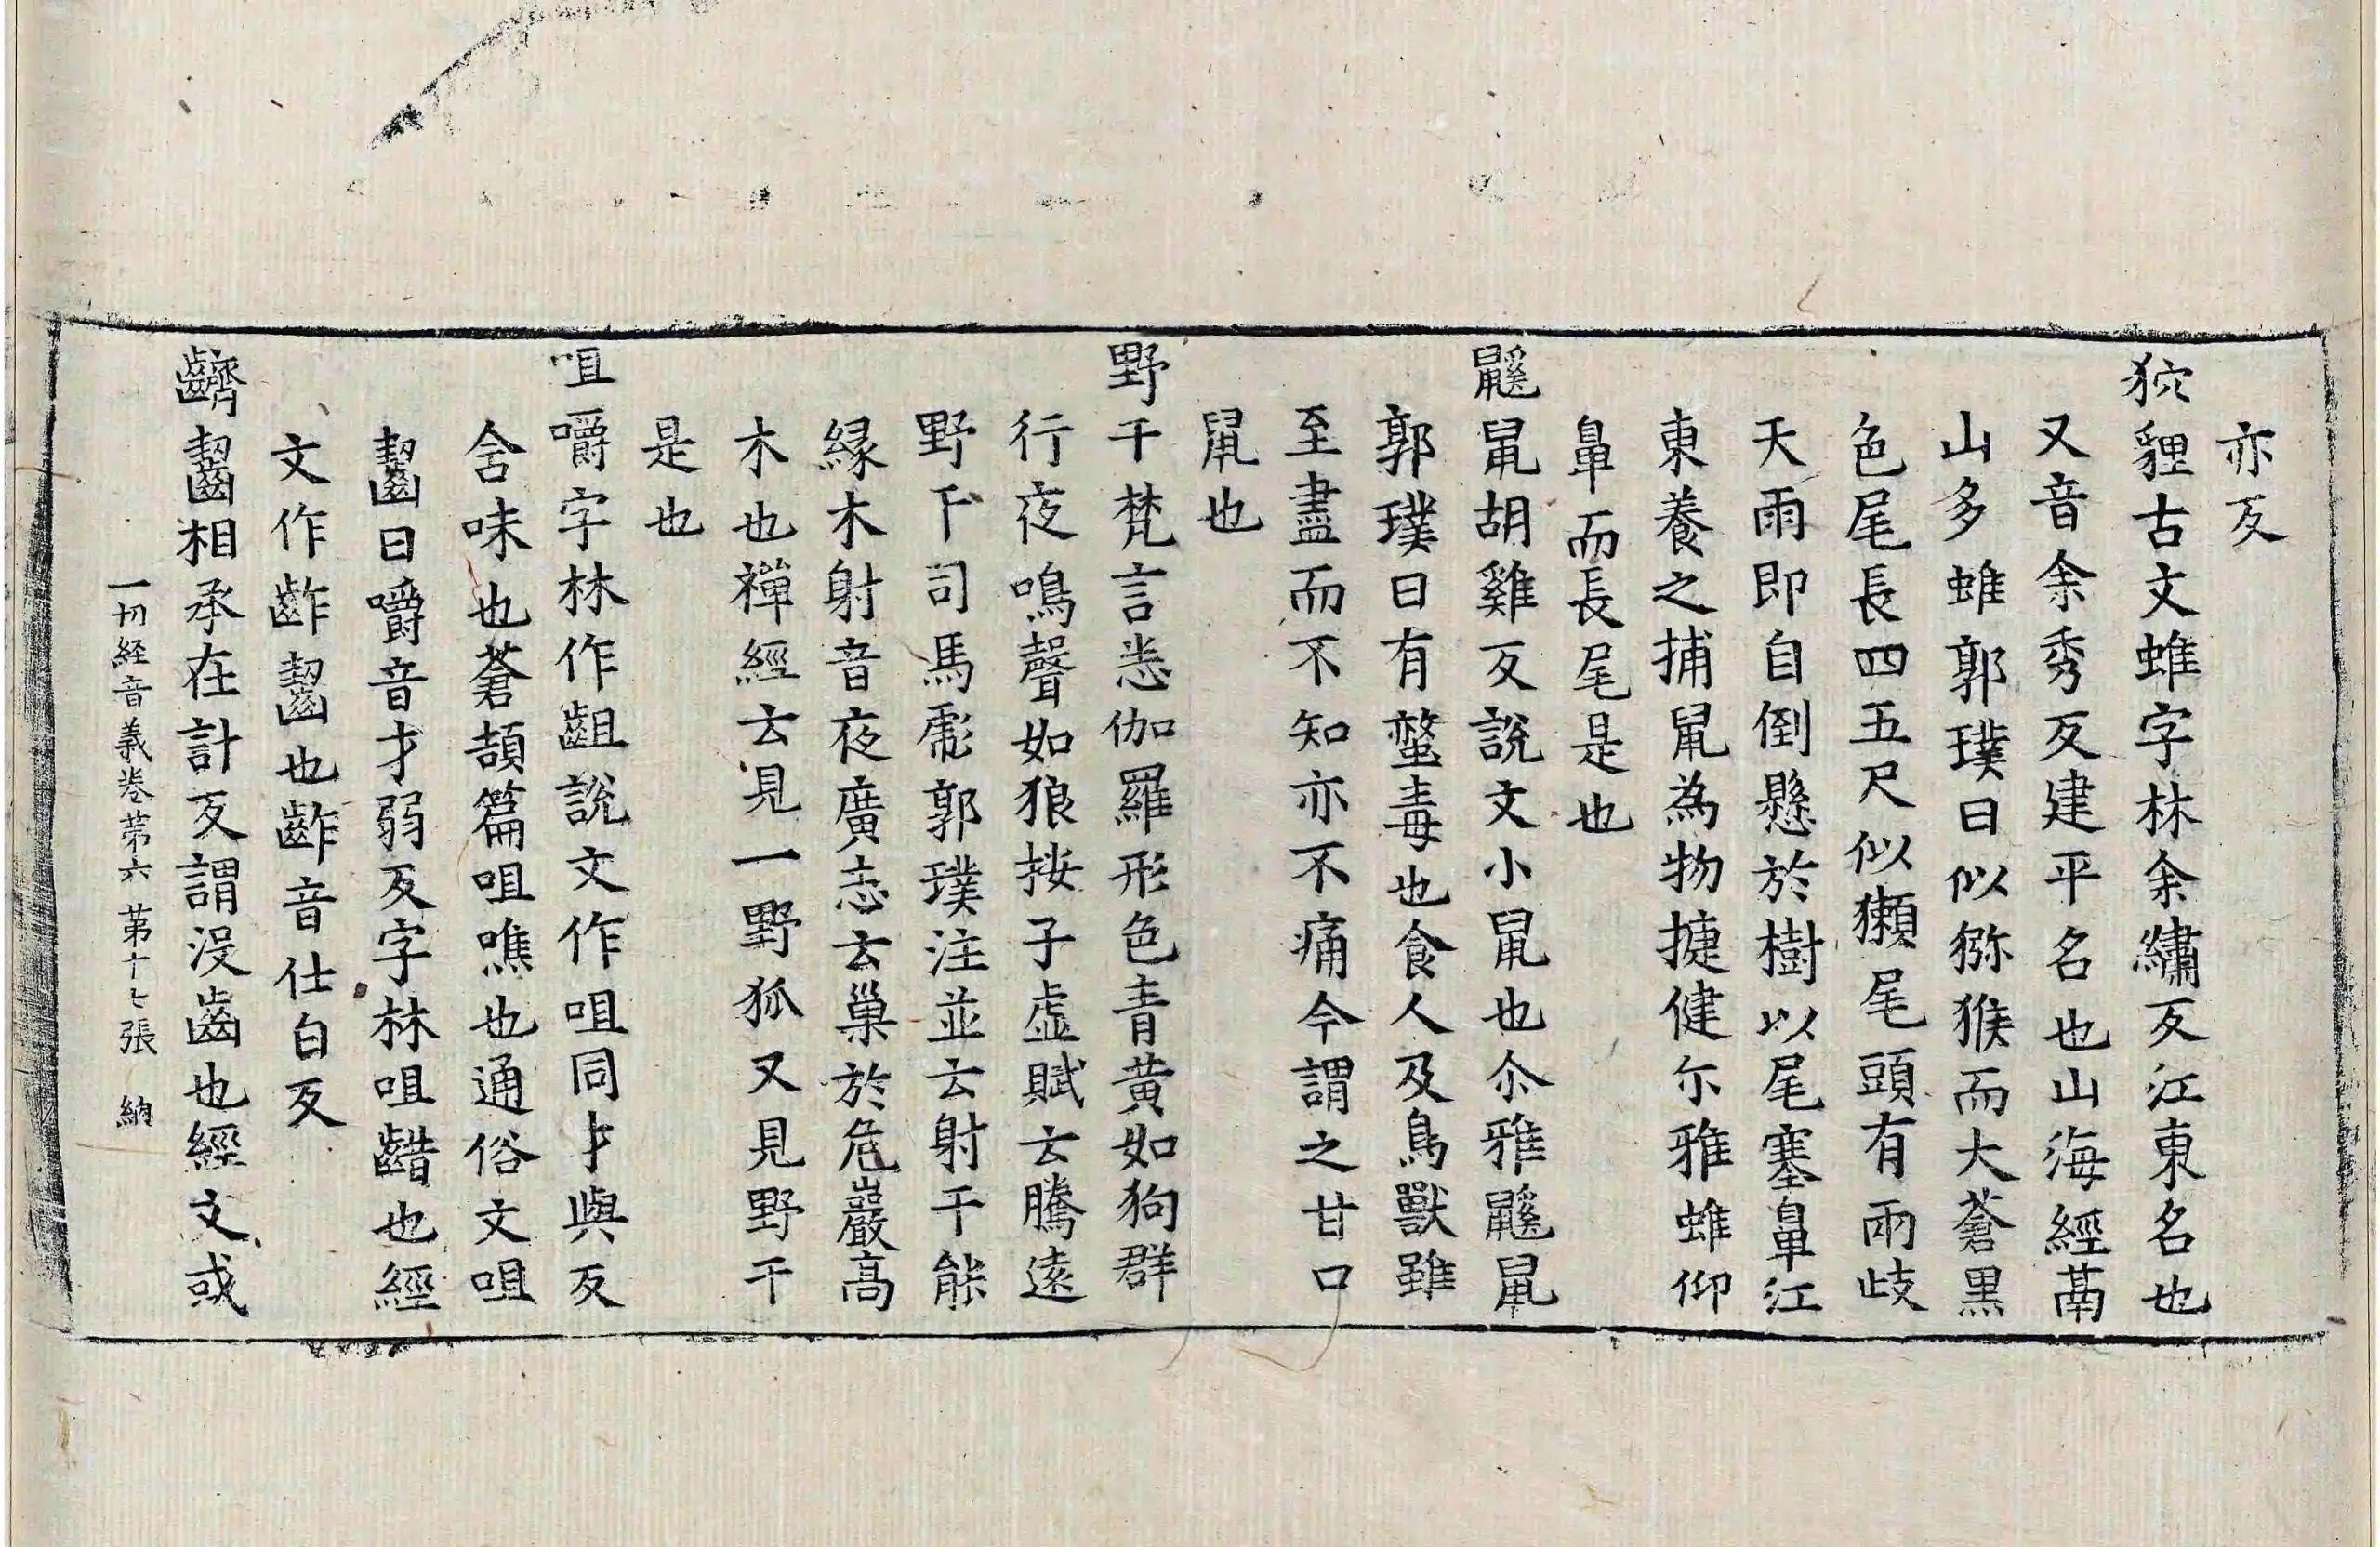 亦反
狖貍古文蜼字林余繡反江東名也
又音余秀反建平名也山海經萳
山多蜼郭璞曰似猕猴而大蒼黑
色尾長四五尺似獺尾頭有兩歧
天雨即自倒懸於樹以尾塞鼻江
東養之捕鼠為物捷健尒雅蜼仰
鼻而長尾是也
鼷鼠胡雞反說文小鼠也尒雅鼷鼠
郭璞曰有螫毒也食人及鳥獸雖
至盡而不知亦不痛今謂之甘口
鼠也
野干梵言悉伽羅形色青黃如狗群
行夜鳴聲如狼按子虛賦云騰遠
野干司馬彪郭璞注並云射干能
緣木射音夜廣志云巢於危巖高
木也禪經云見一野狐又見野干
是也
咀嚼字林作齟說文作咀同才與反
含味也蒼頡篇咀噍也通俗文咀
齧曰嚼音才弱反字林咀齰也經
文作齚齧也齚音仕白反
齌齧相承在計反謂没齒也經文或
一切経音義卷苐六 苐十七張 納